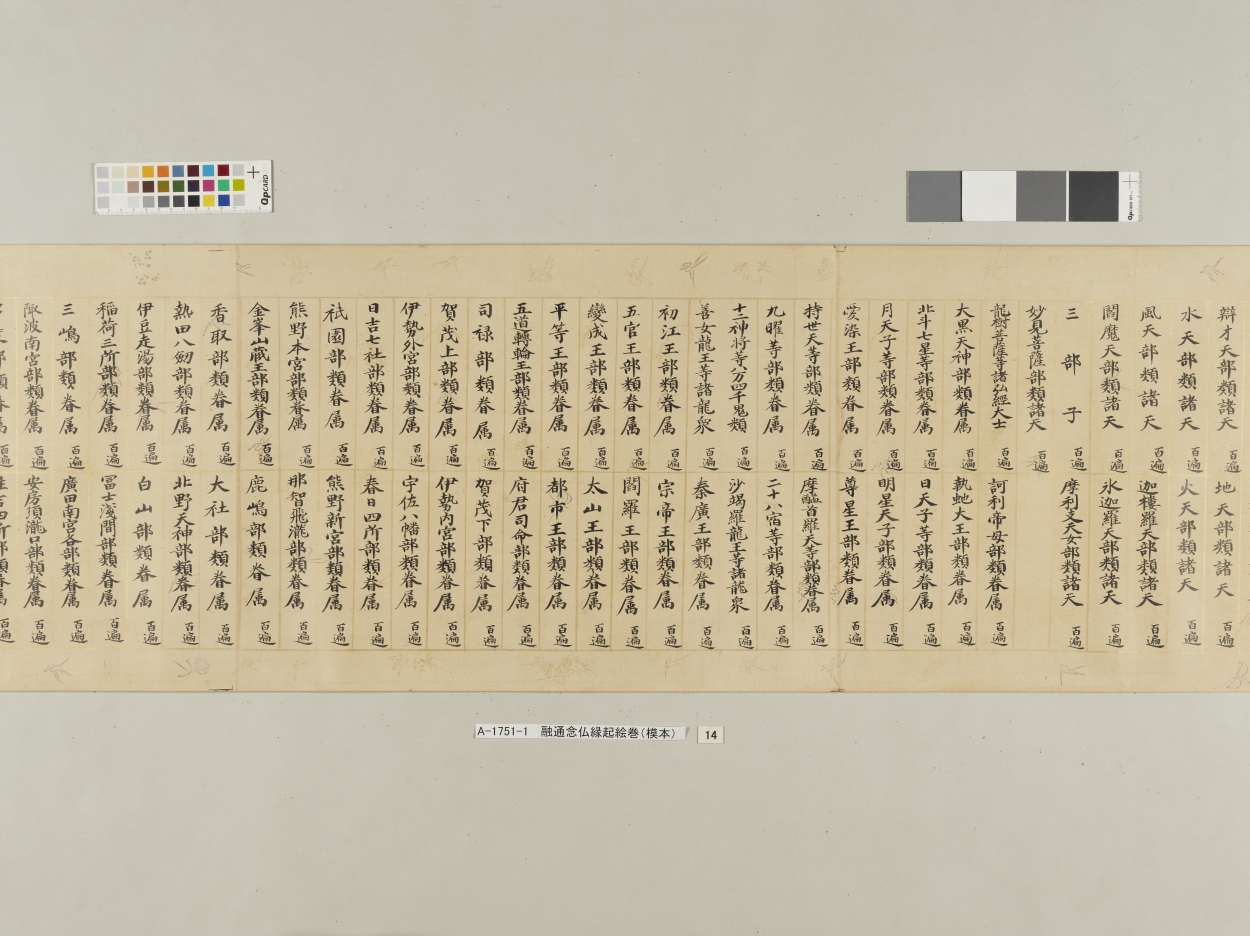 辯才天部類諸天 百遍 地天部類諸天 百遍
水天部類諸天 百遍 火天部類諸天 百遍
風天部類諸天 百遍 迦樓羅天部類諸天 百遍
閻魔天部類諸天 百遍 氷迦羅天部類諸天 百遍
三部子 百遍 摩利支天女部類諸天 百遍
妙見菩薩部類諸天 百遍
龍樹菩薩等諸弘經大士 百遍 訶利帝母部類眷属 百遍
大黒天神部類眷属 百遍 執虵大王部類眷属 百遍
北斗七星等部類眷属 百遍 日天子等部類眷属 百遍
月天子等部類眷属 百遍 明星天子部類眷属 百遍
愛染王部類眷属 百遍 尊星王部類眷属 百遍
持世天等部類眷属 百遍 摩醯首羅天等部類眷属 百遍
九曜等部類眷属 百遍 二十八宿等部類眷属 百遍
十二神将等八万四千鬼類 百遍 沙竭羅龍王等諸龍衆 百遍
善女龍王等諸龍衆 百遍 秦廣王部類眷属 百遍
初江王部類眷属 百遍 宗帝王部類眷属 百遍
五官王部類眷属 百遍 閻羅王部類眷属 百遍
變成王部類眷属 百遍 太山王部類眷属 百遍
平等王部類眷属 百遍 都市王部類眷属 百遍
五道轉輪王部類眷属 百遍 府君司命部類眷属 百遍
司禄部類眷属 百遍 賀茂下部類眷属 百遍
賀茂上部類眷属 百遍 伊勢内宮部類眷属 百遍
伊勢外宮部類眷属 百遍 宇佐八幡部類眷属 百遍
日吉七社部類眷属 百遍 春日四所部類眷属 百遍
祇園部類眷属 百遍 熊野新宮部類眷属 百遍
熊野本宮部類眷属 百遍 那智飛瀧部類眷属 百遍
金峯山蔵王部類眷属 百遍 鹿嶋部類眷属 百遍
香取部類眷属 百遍 大社部類眷属 百遍
熱田八劒部類眷属 百遍 北野天神部類眷属 百遍
伊豆走湯部類眷属 百遍 白山部類眷属 百遍
稲荷三所部類眷属 百遍 冨士浅間部類眷属 百遍
三嶋部類眷属 百遍 廣田南宮各部類眷属 百遍
諏波南宮部類眷属 百遍 安房須瀧口部類眷属 百遍
部類眷属 百遍 住吉四所部類眷属 百遍
A-1751-1 融通念仏縁起絵巻(模本) 14
QPCARD